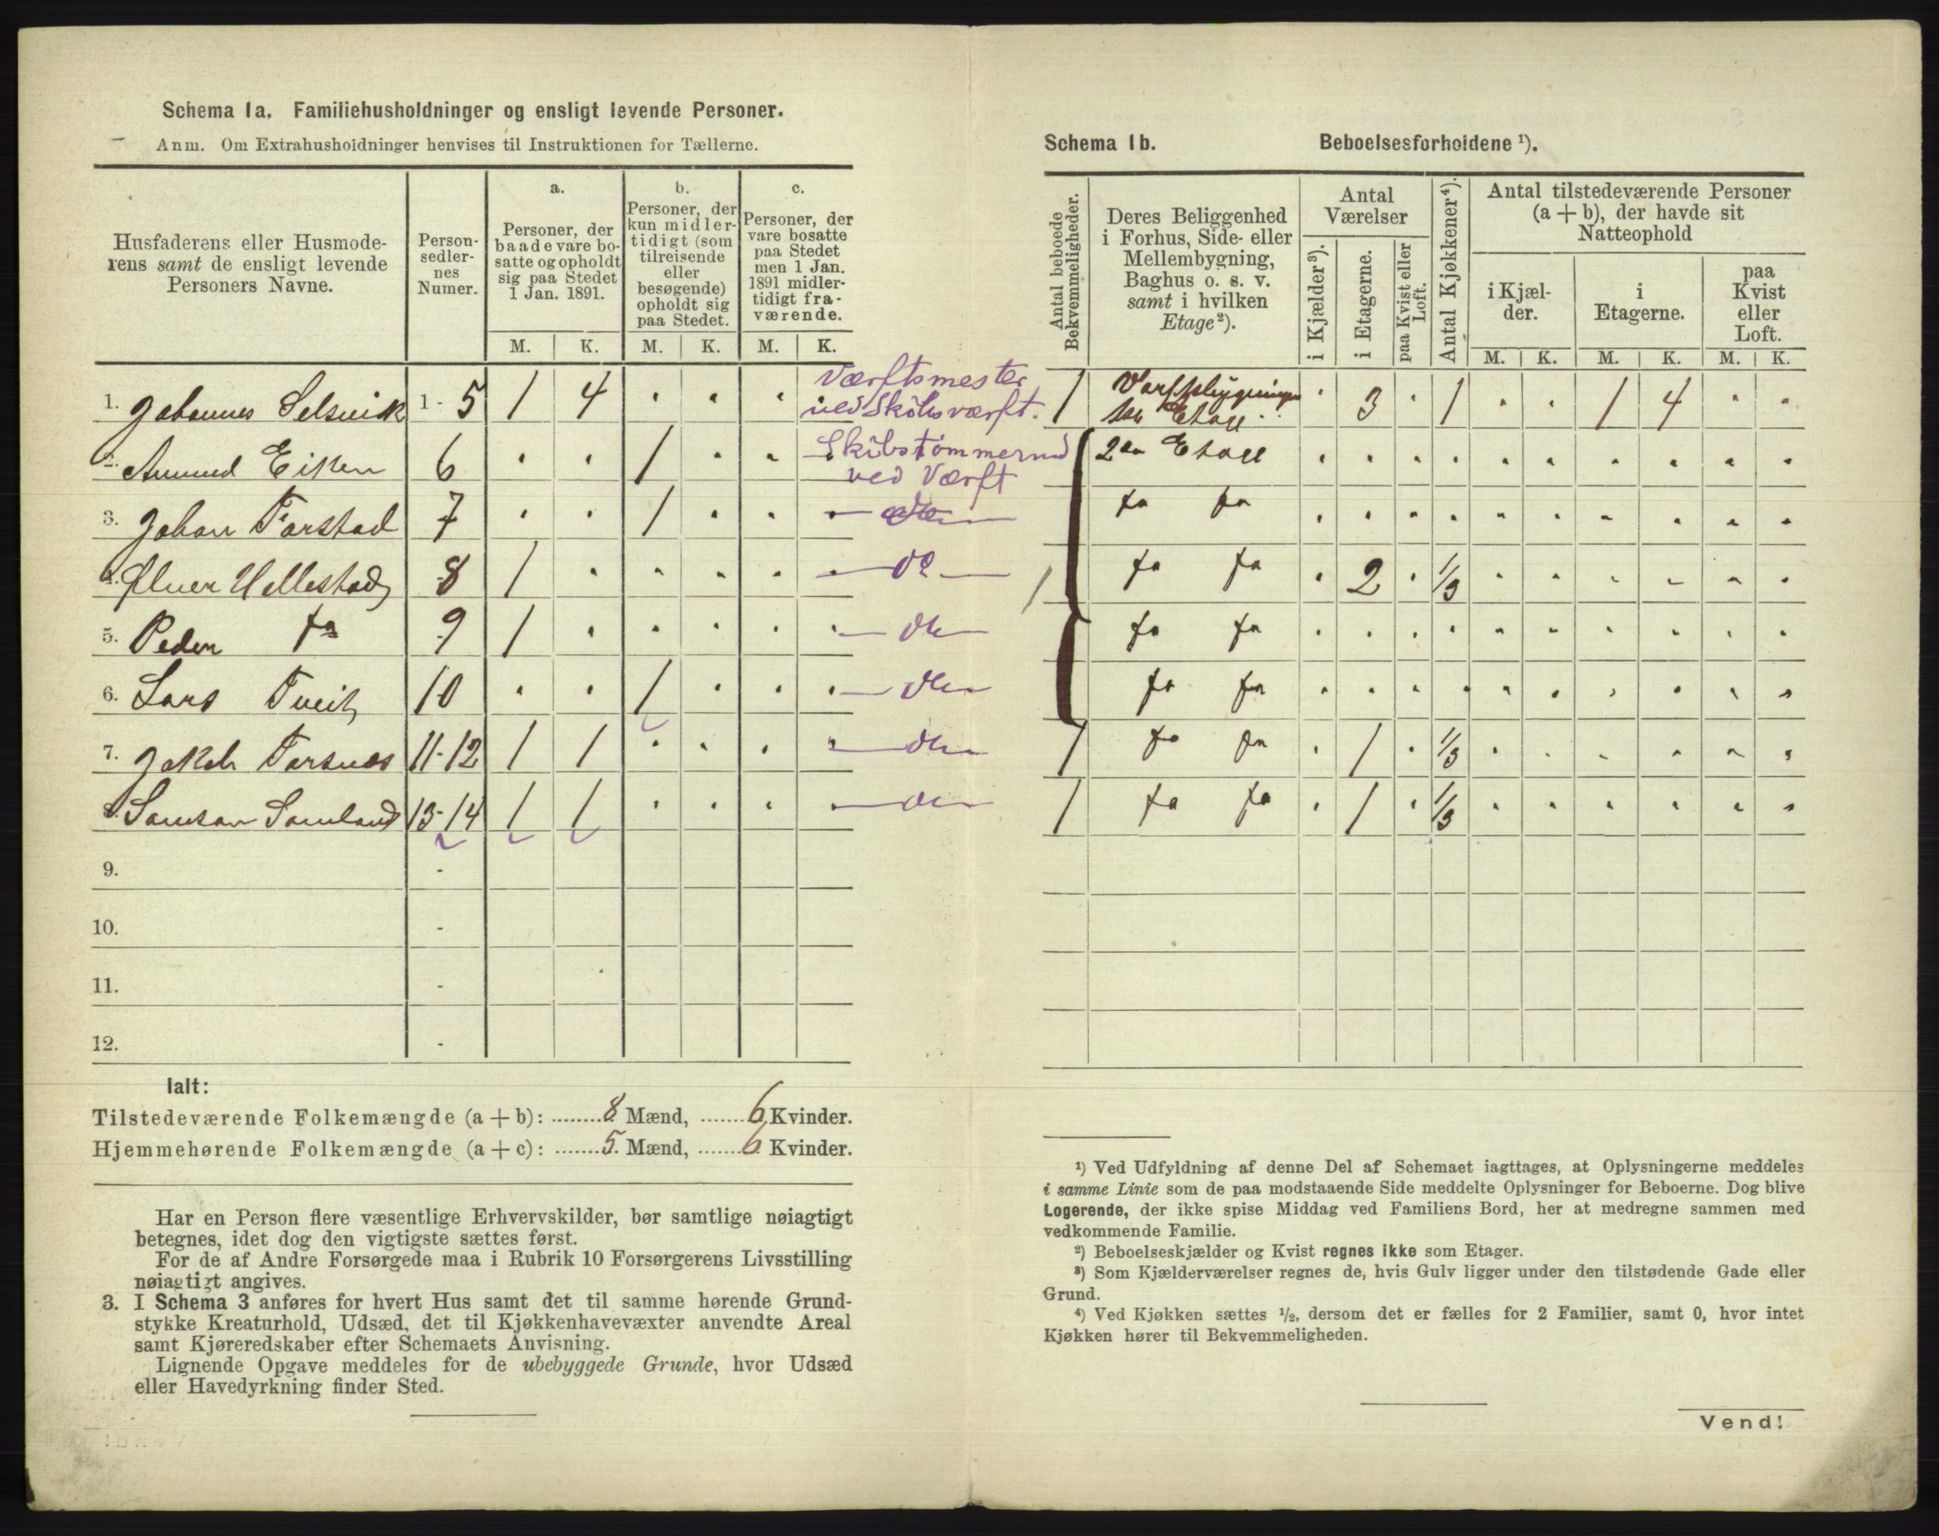 Schema 1a. Familiehusholdninger og ensligt levende Personer.
Anm. Om Extrahusholdninger henvises til Instruktionen for Tællerne.
Husfaderens eller Husmoderens samt de ensligt levende Personers Navne.
Personsedlernes Numer.
a.
Personer, der baade vare bosatte og opholdt sig paa Stedet 1 Jan. 1891.
b.
Personer, der kun midlertidigt (som tilreisende eller besøgende) opholdt sig paa Stedet.
c.
Personer, der vare bosatte paa Stedet men 1 Jan. 1891 midlertidigt fraværende.
M. K. M. K. M. K.
1. Johannes Selsvik 1-5 1 4 Værftsmester ved Skibsværft.
2. Amund Eiken 6 1 Skibstømmermd ved Værft
3. Johan Farstad 7 1
4. Ølver Hellestad 8 1
5. Peder fa 9 1
6. Lars Tveit 10 1
7. Jakob Torsnes 11-12 1 1
8. Samson Samland 13-14 1 1
9. -
10. -
11. -
12. -
Ialt:
Tilstedeværende Folkemængde (a + b): 8 Mænd, 6 Kvinder.
Hjemmehørende Folkemængde (a + c): 5 Mænd, 6 Kvinder.
Har en Person flere væsentlige Erhvervskilder, bør samtlige nøiagtigt
betegnes, idet dog den vigtigste sættes først.
For de af Andre Forsørgede maa i Rubrik 10 Forsørgerens Livsstilling
nøiagtigt angives.
3. I Schema 3 anføres for hvert Hus samt det til samme hørende Grund-
stykke Kreaturhold, Udsæd, det til Kjøkkenhavevæxter anvendte Areal
samt Kjøreredskaber efter Schemaets Anvisning.
Lignende Opgave meddeles for de ubebyggede Grunde, hvor Udsæd
eller Havedyrkning finder Sted.
Schema 1b. Beboelsesforholdene ¹).
Antal beboede Bekvemmeligheder.
Deres Beliggenhed i Forhus, Side- eller Mellembygning, Baghus o. s. v. samt i hvilken Etage²).
Antal Værelser
i Kjælder³).
i Etagerne.
paa Kvist eller Loft.
Antal Kjøkkener⁴).
Antal tilstedeværende Personer (a + b), der havde sit Natteophold
i Kjælder.
i Etagerne.
paa Kvist eller Loft.
M. K. M. K. M. K.
1 3 1 1 4
2en Etage
fa fa
1 fa fa 2 1/3
fa fa
fa fa
1 fa fa 1 1/3
1 fa fa 1 1/3
¹) Ved Udfyldning af denne Del af Schemaet iagttages, at Oplysningerne meddeles
i samme Linie som de paa modstaaende Side meddelte Oplysninger for Beboerne. Dog blive
Logerende, der ikke spise Middag ved Familiens Bord, her at medregne sammen med
vedkommende Familie.
²) Beboelseskjælder og Kvist regnes ikke som Etager.
³) Som Kjælderværelser regnes de, hvis Gulv ligger under den tilstødende Gade eller
Grund.
⁴) Ved Kjøkken sættes ½, dersom det er fælles for 2 Familier, samt 0, hvor intet
Kjøkken hører til Bekvemmeligheden.
Vend!